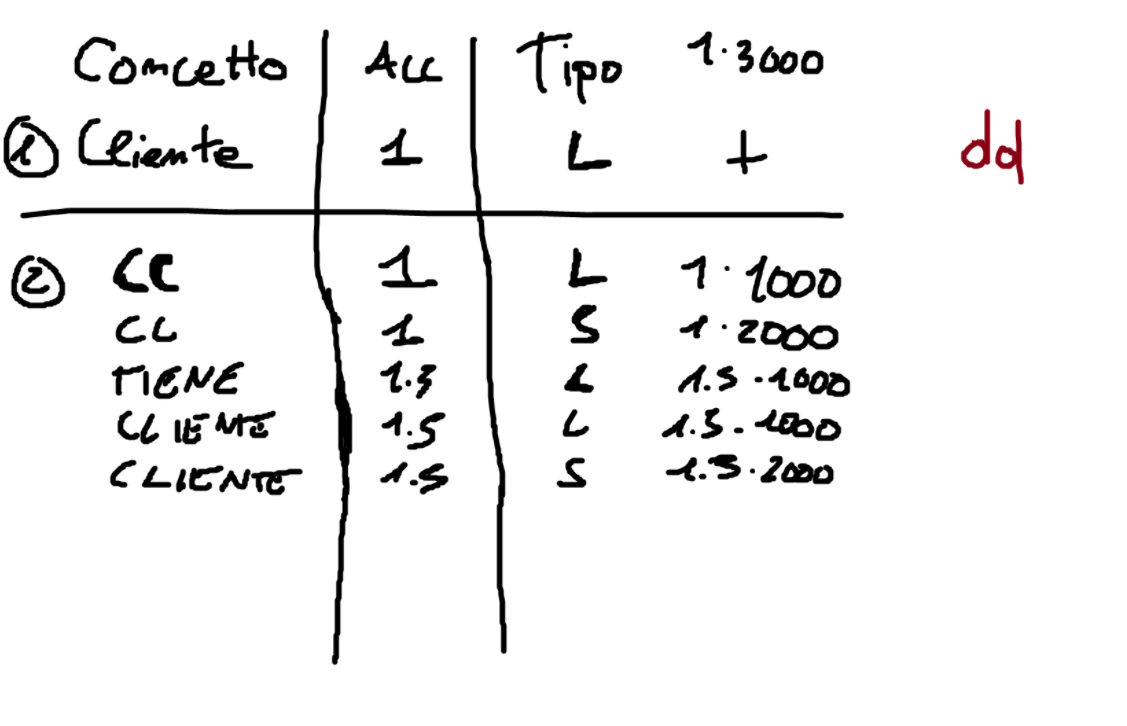 Concetto Acc Tipo 1·3000
1 Cliente 1 L + dd
2 CC 1 L 1·1000
CC 1 S 1·2000
TIENE 1.5 L 1.5·1000
CLIENTE 1.5 L 1.5·1000
CLIENTE 1.5 S 1.5·2000